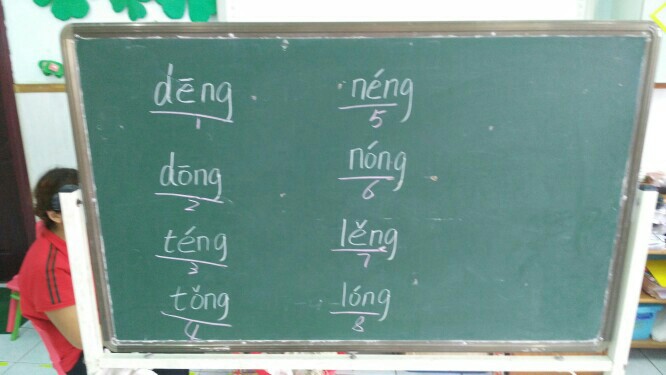 dēng
1
dōng
2
téng
3
tǒng
4
néng
5
nóng
6
lěng
7
lóng
8